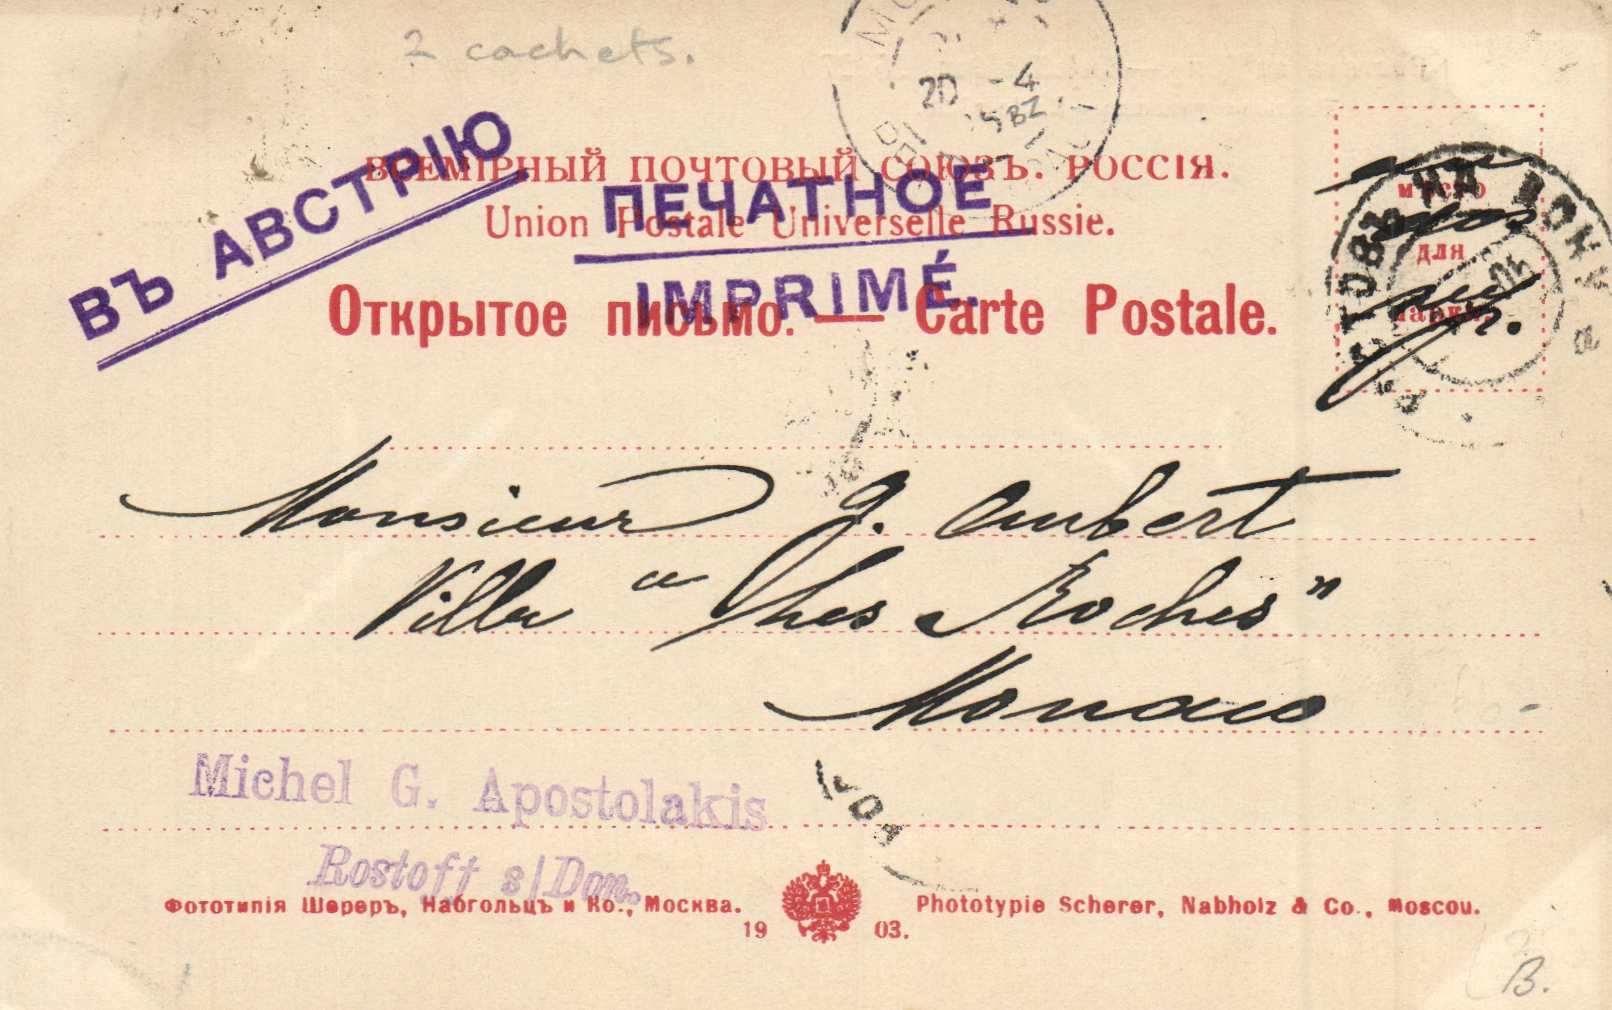 2 cachets.
20 -4
ВСЕМІРНЫЙ ПОЧТОВЫЙ СОЮЗЪ. РОССІЯ.
ВЪ АВСТРІЮ
ПЕЧАТНОЕ
Union Postale Universelle Russie.
IMPRIMÉ.
Открытое письмо. — Carte Postale.
мѣсто
для
марки.
Monsieur J. Aubert
Villa "Les Roches"
Monaco
Michel G. Apostolakis
Rostoff s/Don.
Фототипія Шереръ, Набгольцъ и Ко., Москва.
Phototypie Scherer, Nabholz & Co., Moscou.
1903.
B.